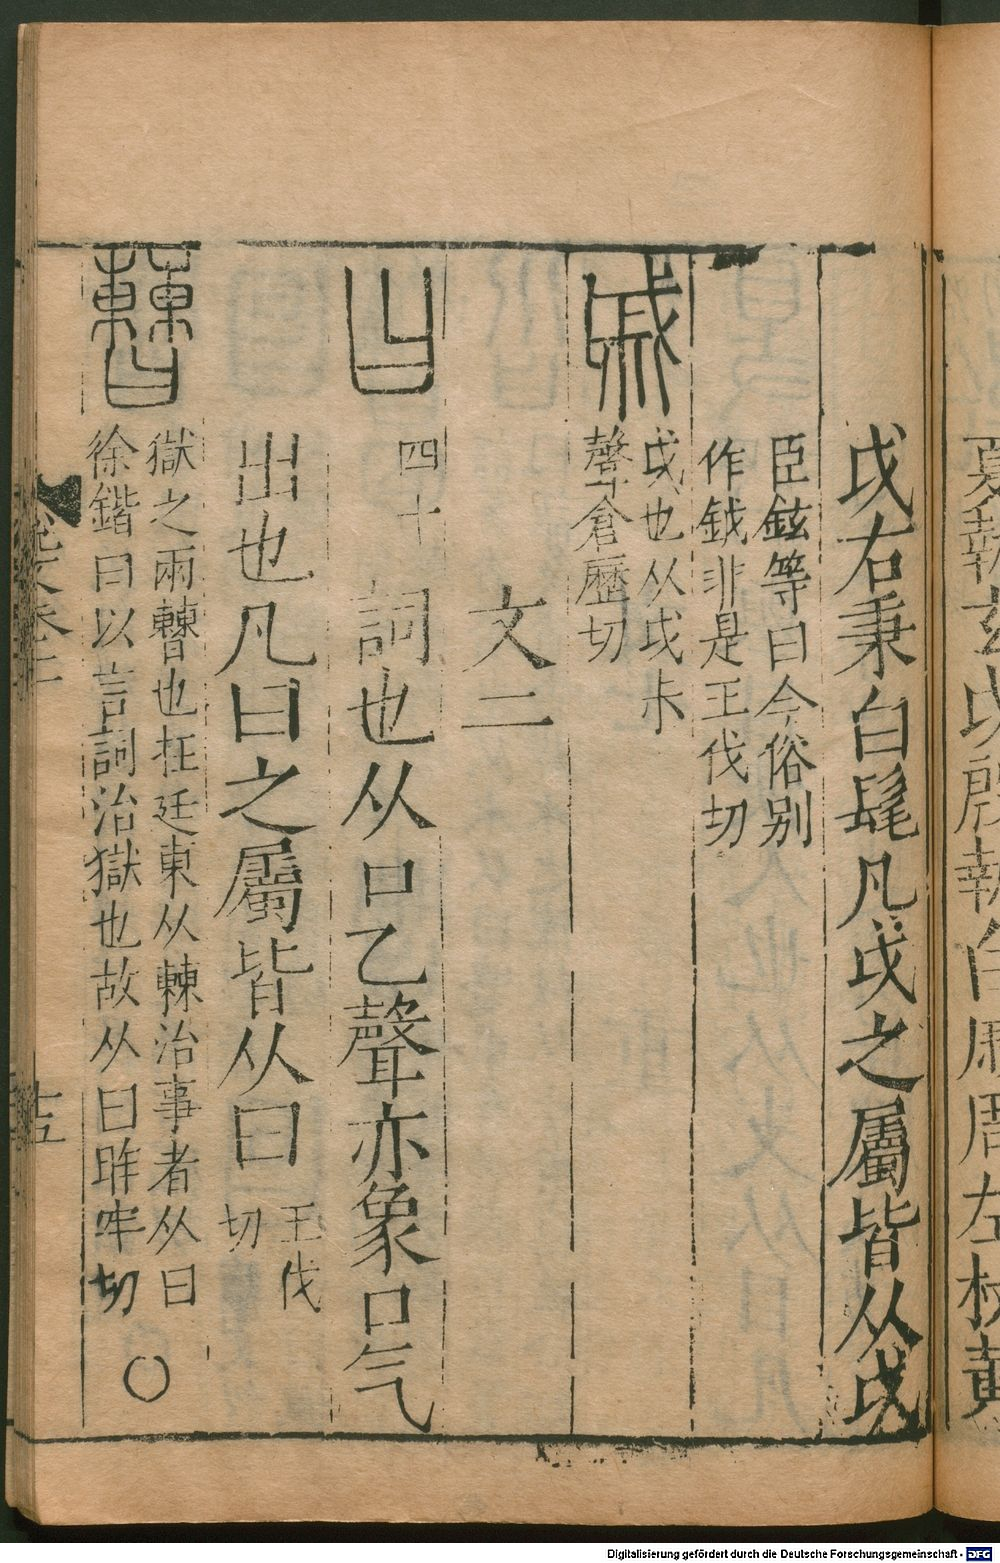 夏執玄戉殷執白戚周左杖黃
戉右秉白髦凡戉之屬皆从戉
臣鉉等曰今俗别
作鉞非是王伐切
戚
戉也从戉尗
聲倉歷切
文二
曰
四十
詞也从口乙聲亦象口气
出也凡曰之屬皆从曰
王伐
切
𣍘
獄之兩𣍘也在廷東从㯥治事者从曰
徐鍇曰以言詞治獄也故从曰昨牢切
〇
十五
Digitalisierung gefördert durch die Deutsche Forschungsgemeinschaft - DFG